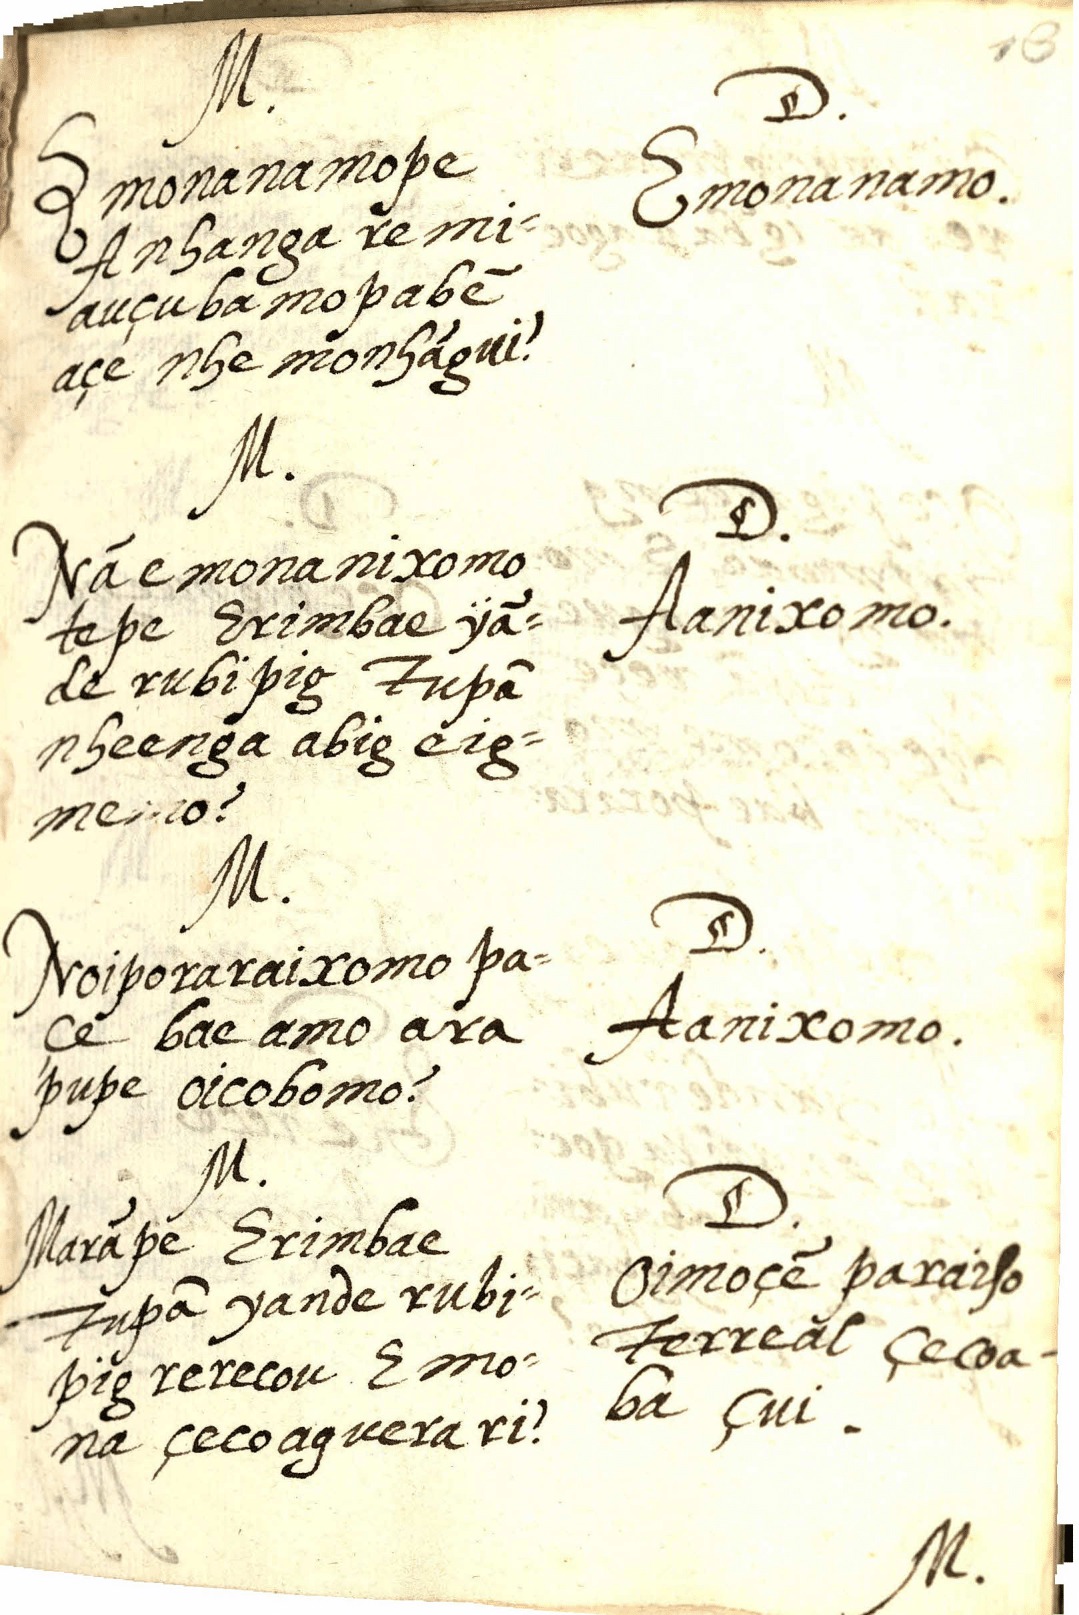 18
M.
Emonanamope
Anhanga remi=
auçubamopabẽ
açe nhe monhãgui?
D.
Emonanamo.
M.
Nã emonanixomo
tepe Erimbae ÿã=
de rubipig Tupã
nheenga abig eig=
memo?
D.
Aanixomo.
M.
Noiporaraixomo pa=
ce bae amo ara
pupe oicobomo?
D.
Aanixomo.
M.
Marãpe Erimbae
Tupã yande rubi=
pig rerecou Emo=
na çecoaguera ri?
D.
Oimoçẽ paraiso
Terreal çecoa-
ba çui.
M.